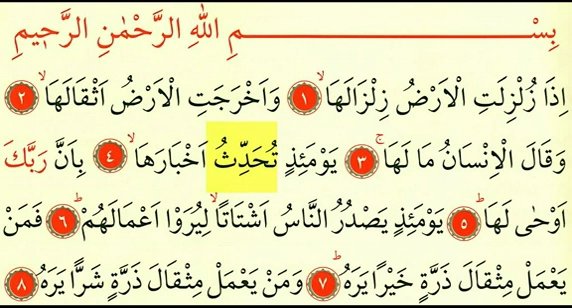 بِسْمِ اللّٰهِ الرَّحْمٰنِ الرَّحِيمِ
اِذَا زُلْزِلَتِ الْاَرْضُ زِلْزَالَهَاۙ ١ وَاَخْرَجَتِ الْاَرْضُ اَثْقَالَهَاۙ ٢
وَقَالَ الْاِنْسَانُ مَا لَهَاۚ ٣ يَوْمَئِذٍ تُحَدِّثُ اَخْبَارَهَاۙ ٤ بِاَنَّ رَبَّكَ
اَوْحٰى لَهَاۜ ٥ يَوْمَئِذٍ يَصْدُرُ النَّاسُ اَشْتَاتاًۙ لِيُرَوْا اَعْمَالَهُمْۜ ٦ فَمَنْ
يَعْمَلْ مِثْقَالَ ذَرَّةٍ خَيْراً يَرَهُۜ ٧ وَمَنْ يَعْمَلْ مِثْقَالَ ذَرَّةٍ شَرًّا يَرَهُ ٨